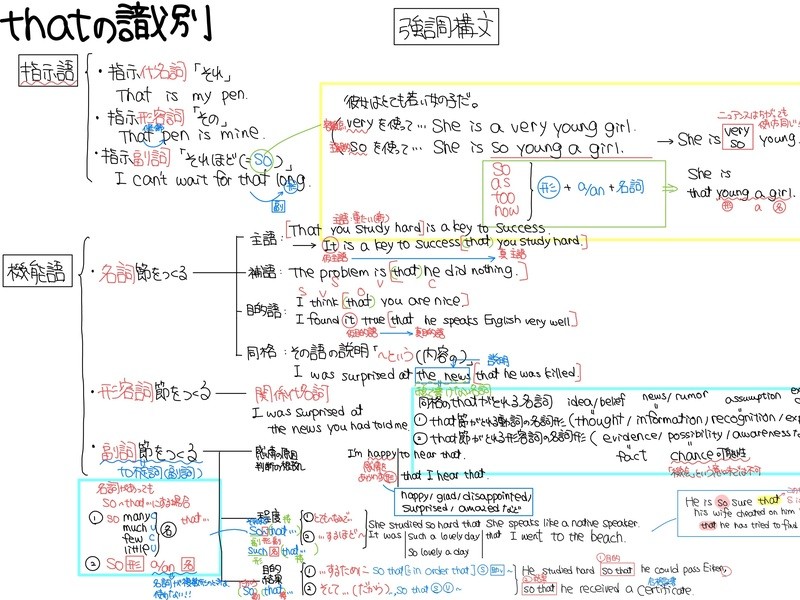 thatの識別
強調構文
指示語
・指示代名詞「それ」
That is my pen.
・指示形容詞「その」
That pen is mine.
・指示副詞「それほど(=so)」
I can't wait for that long.
形
副
彼女はとても若い女の子だ。
veryを使って… She is a very young girl.
soを使って… She is so young a girl.
→ She is very so young
so
as
too
how
形 + a/an + 名詞
⇒
She is
that young a girl.
形 a 名
機能語
・名詞節をつくる
主語:[That you study hard] is a key to success.
→ It is a key to success [that you study hard.]
仮主語
真主語
補語: The problem is [that he did nothing.]
S V S O V C
目的語: I think [that you are nice.]
I found it true [that he speaks English very well]
仮目的語 → 真目的語
同格:その語の説明「〜という(内容の)」
説明
I was surprised at the news [that he was killed]
・形容詞節をつくる
関係代名詞
I was surprised at
the news you had told me.
同格のthatがとれる名詞 idea/belief news/rumor assumption
① that節がとれる動詞の名詞形 (thought / information / recognition /
② that節がとれる形容詞の名詞形 ( evidence / possibility / awareness
fact chance可能性
・副詞節をつくる
to不定詞(副詞)
感情の原因
判断の根拠
I'm happy to hear that.
that I hear that.
happy/glad/disappointed/
surprised/amazedなど
名詞があっても
so〜that…にする場合
① so many much few little 名 that…
② so 形 a/an 名
程度
so that…
such 名 that…
① とても〜なので…
② …するほど〜
She studied so hard that She speaks like a native speaker.
It was such a lovely day that I went to the beach.
so lovely a day
He is so sure that
his wife cheated on him
that he has tried to find
目的
結果
① …するために so that [= in order that] S 助V〜
② そして…(だから), so that S V〜
①目的
He studied hard so that he could pass Eiken,
②結果
so that he received a certificate.